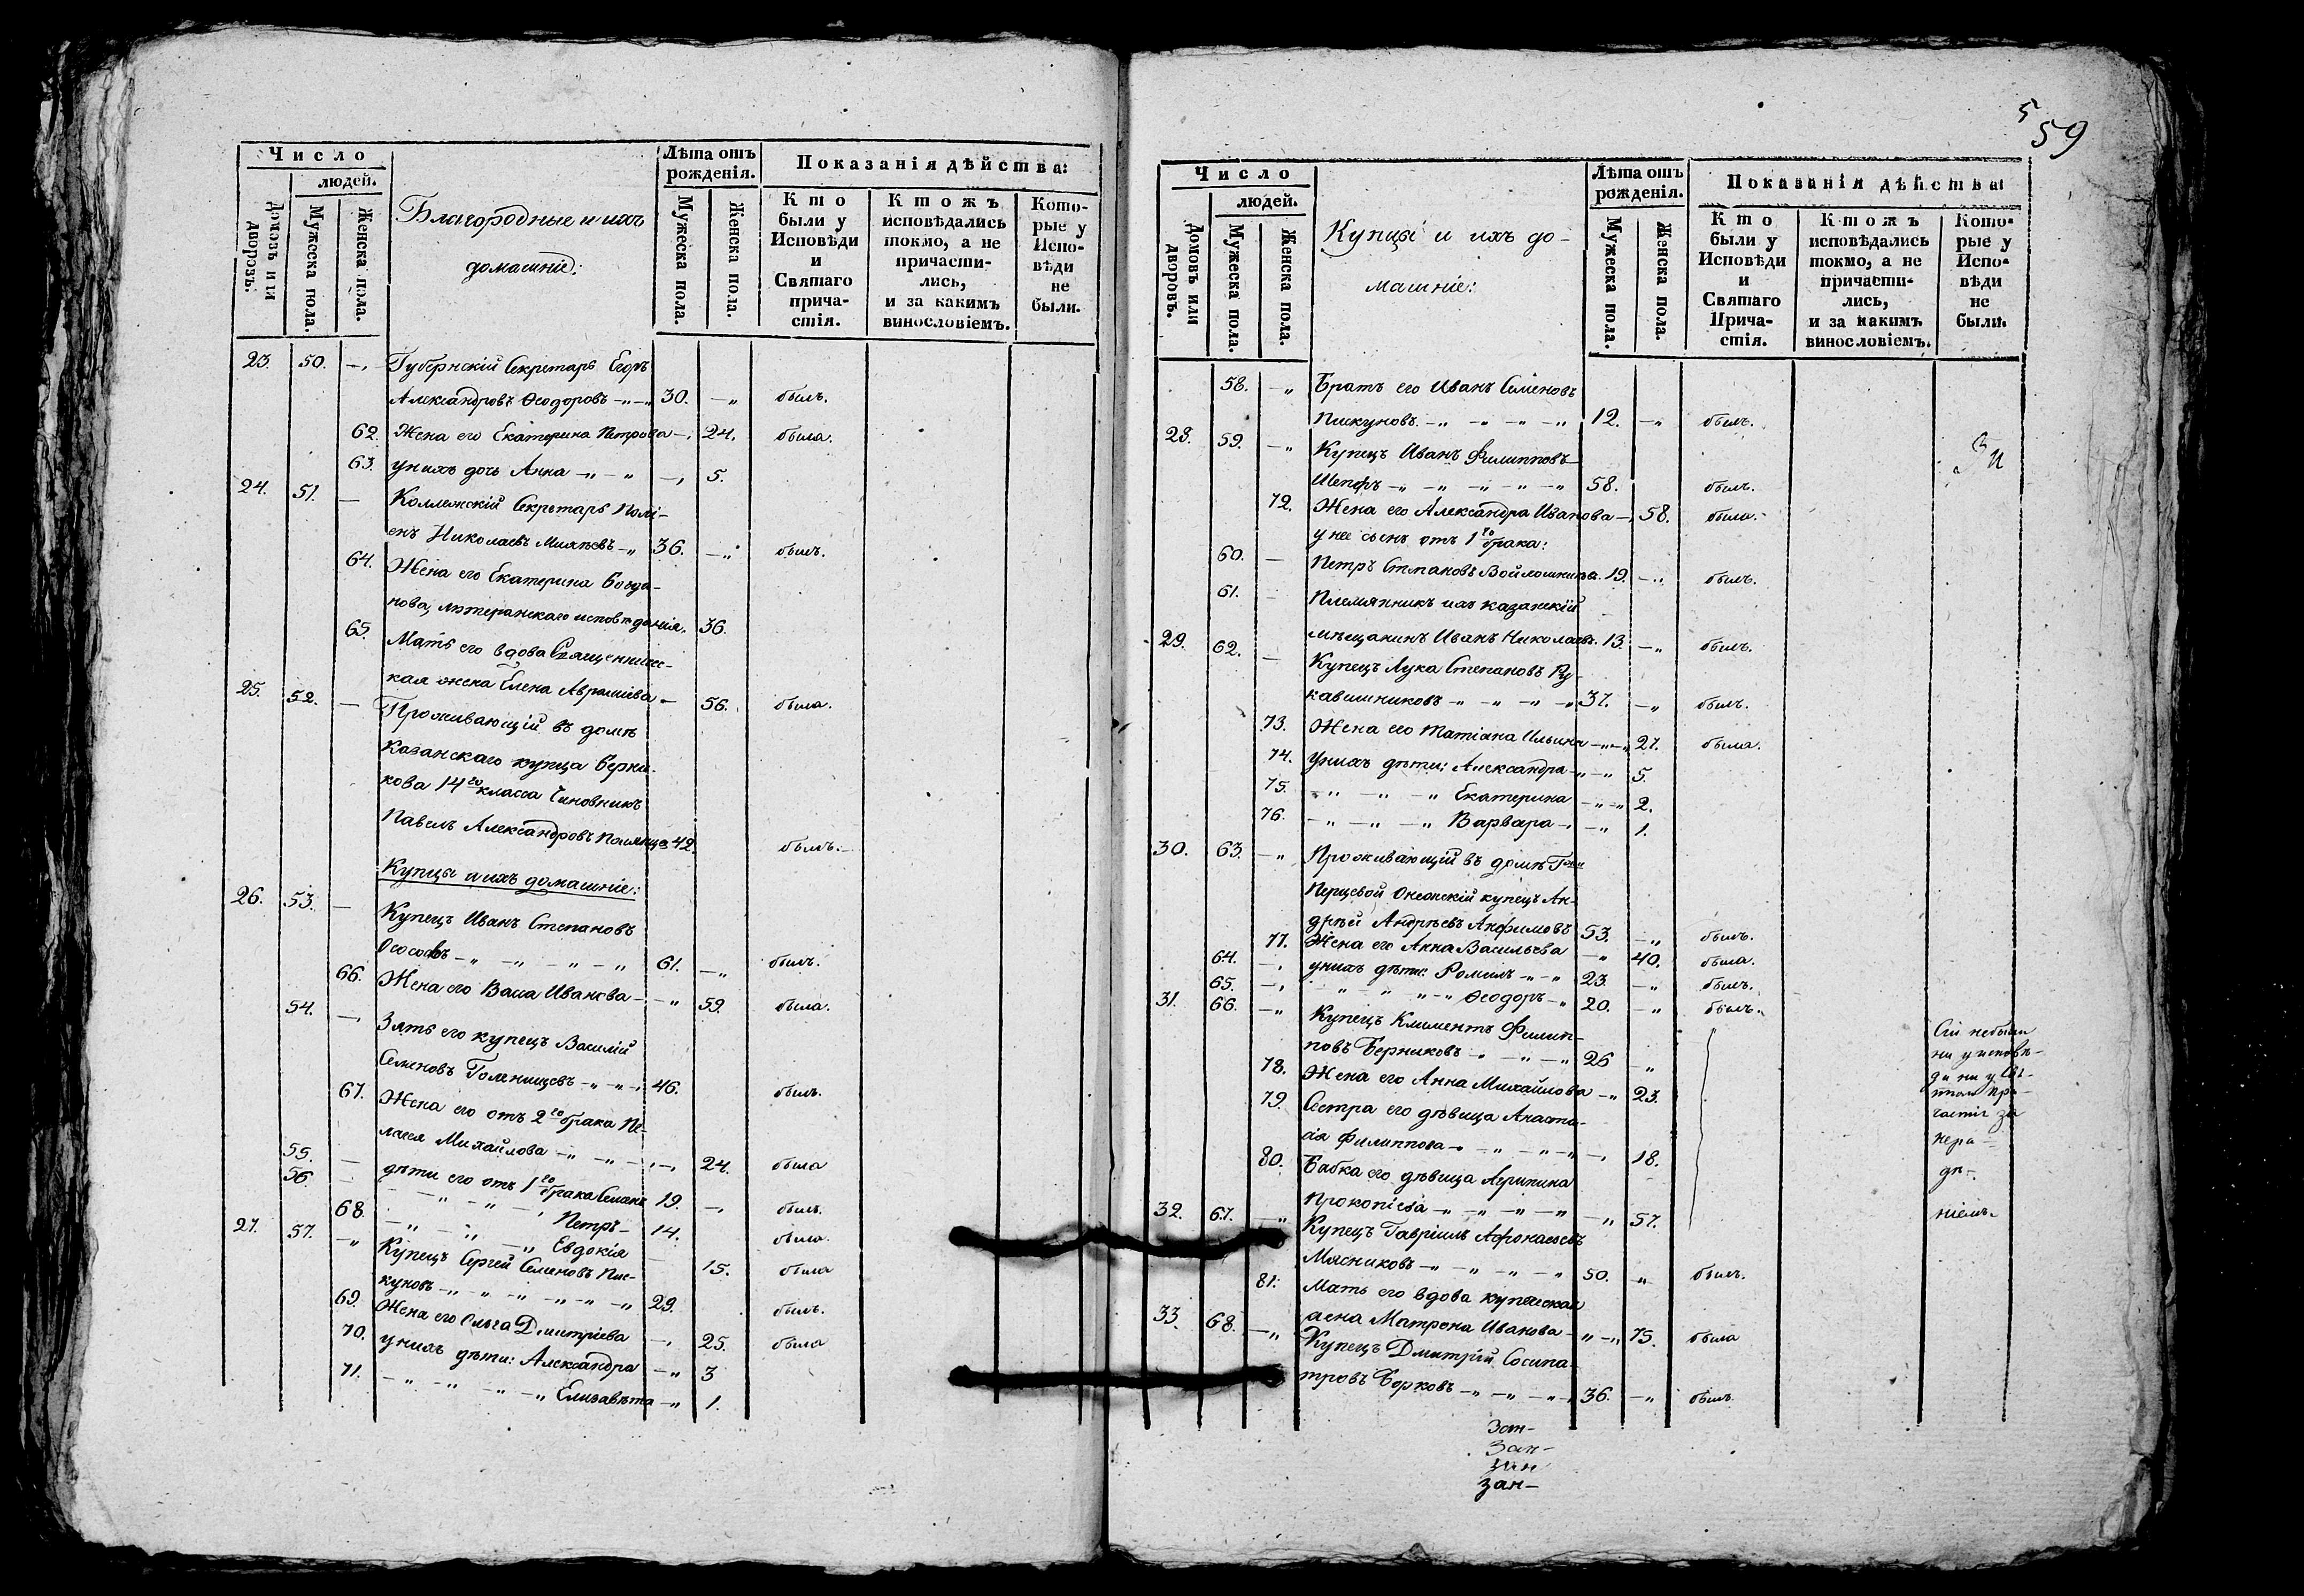 Число
людей.
Домовъ или дворовъ.
Мужеска пола.
Женска пола.
Благородные и ихъ
домашніе:
Лѣта отъ
рожденія.
Мужеска пола.
Женска пола.
Показанія дѣйства:
Кто
были у
Исповѣди
и
Святаго
прича-
стія.
Ктожъ
исповѣдались
токмо, а не
причасти-
лись,
и за какимъ
винословіемъ.
Кото-
рые у
Испо-
вѣди
не
были.
23. 50. Губернскій Секретарь Егоръ
Александровъ Ѳеодоровъ 30. былъ.
62. Жена его Екатерина Петрова 24. была.
63. у нихъ дочь Анна 5.
24. 51. Коллежскій Секретарь
Николаевъ 36. былъ.
64. Жена его Екатерина Богда-
нова, лютеранскаго исповѣданія. 36.
65. Мать его вдова Священниче-
ская жена Елена Авраміева 56. была.
25. 52. Проживающій въ домѣ
Казанскаго купца Берни-
кова 14го класса Чиновникъ
Павелъ Александровъ 42. былъ.
Купцы и ихъ домашніе:
26. 53. Купецъ Иванъ Степановъ
61. былъ.
66. Жена его Васса Иванова 59. была.
54. Зять его купецъ Василій
Семеновъ Голенищевъ 46. былъ.
67. Жена его отъ 2го брака Пе-
лагея Михайлова 24. была
55. дѣти его отъ 1го брака Семенъ 19. былъ.
56. Петръ 14. былъ.
68. Евдокія 15. была
27. 57. Купецъ Сергей Семеновъ Пис-
куновъ 29. былъ.
69. Жена его Ольга Дмитріева 25. была
70. у нихъ дѣти: Александра 3
71. Елизавѣта 1.
5
59
Число
людей.
Домовъ или дворовъ.
Мужеска пола.
Женска пола.
Купцы и ихъ до-
машніе:
Лѣта отъ
рожденія.
Мужеска пола.
Женска пола.
Показанія дѣйства:
Кто
были у
Исповѣди
и
Святаго
Прича-
стія.
Ктожъ
исповѣдались
токмо, а не
причасти-
лись,
и за какимъ
винословіемъ.
Кото-
рые у
Испо-
вѣди
не
были.
58. Братъ его Иванъ Семеновъ
Пискуновъ 12. былъ.
28. 59. Купецъ Иванъ Филипповъ
58. былъ.
72. Жена его Александра Иванова 58. была.
у нее сынъ отъ 1го брака:
60. Петръ Степановъ Войлошниковъ 19. былъ.
61. Племянникъ ихъ казанскій
мѣщанинъ Иванъ Николаевъ 13. былъ.
29. 62. Купецъ Лука Степановъ Ру-
кавишниковъ 37. былъ.
73. Жена его Татіана Ильина 27. была.
74. У нихъ дѣти: Александра 5.
75. Екатерина 2.
76. Варвара 1.
30. 63. Проживающій въ домѣ Гжи
Перцевой купецъ Ан-
дрей Андрѣевъ Анфимовъ 53. былъ.
77. Жена его Анна Васильева 40. была.
64. у нихъ дѣти: Романъ 23. былъ.
65. Ѳеодоръ 20. былъ.
31. 66. Купецъ Климентъ Филип-
повъ Берниковъ 26
78. Жена его Анна Михайлова 23.
79. Сестра его дѣвица Анаста-
сія Филиппова 18.
80. Бабка его дѣвица Агрипина
Прокопіева 57.
Сіи небыли
ни у исповѣ-
ди ни у Свя-
таго При-
частія за
нера-
дѣ-
ніемъ.
32. 67. Купецъ Гавріилъ Афонасьевъ
Мясниковъ 50. былъ.
81. Мать его вдова купеческая
жена Матрона Иванова 75. была
33. 68. Купецъ Дмитрій Сосипа-
тровъ Борковъ 36. былъ.